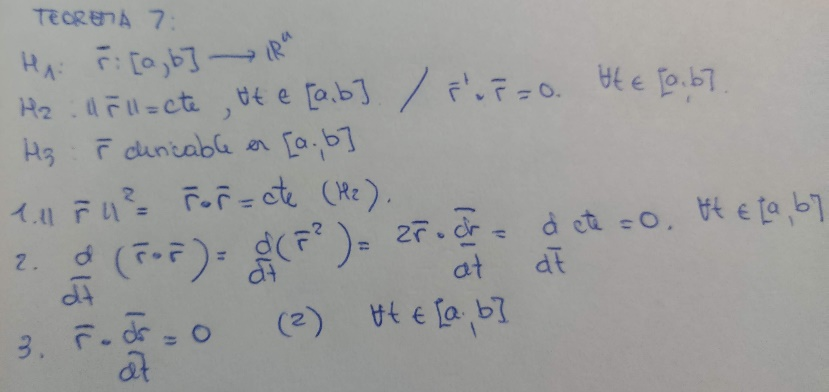 TEOREMA 7:
H1: r̄: [a,b] → ℝⁿ
H2: ‖r̄‖ = cte, ∀t ∈ [a,b] / r̄'·r̄ = 0. ∀t ∈ [a,b].
H3: r̄ derivable en [a,b]
1. ‖r̄‖² = r̄·r̄ = cte (H2).
2. d/dt (r̄·r̄) = d/dt (r̄²) = 2r̄·dr̄/dt = d/dt cte = 0. ∀t ∈ [a,b]
3. r̄·dr̄/dt = 0 (2) ∀t ∈ [a,b]